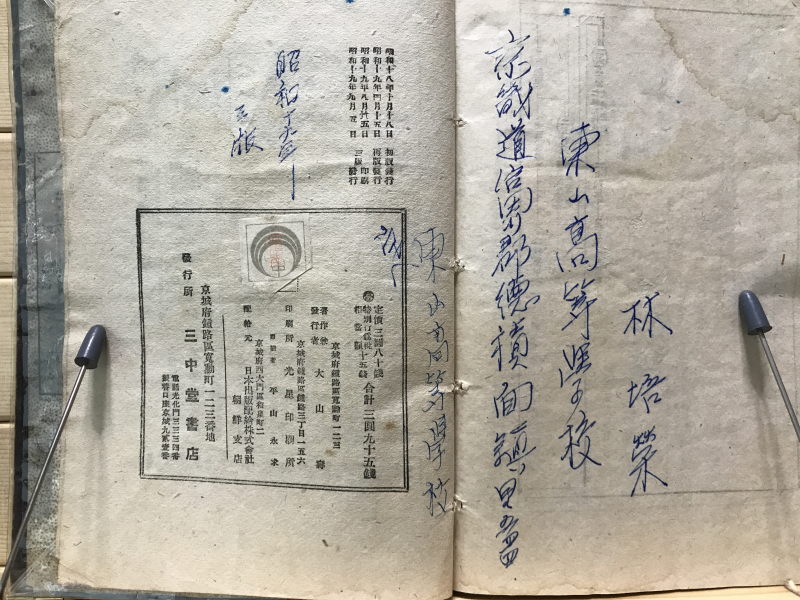 林培榮
東山高等學校
京畿道
郡德積面
東山高等學校
昭和十八年十月十八日 初版發行
昭和十九年四月十五日 再版發行
昭和十九年八月廿五日 三版印刷
昭和十九年九月五日 三版發行
昭和十
三版
定價三圓八十錢
特別行爲稅相當額十五錢
合計三圓九十五錢
京城府鍾路區寬勳町一二三
著作兼發行者 大山壽
京城府鍾路區鍾路三丁目一五六
印刷所 光星印刷所
印刷者 平山永求
京城府西大門區和泉町二
配給元 日本出版配給株式會社
朝鮮支店
京城府鍾路區寬勳町一二三番地
發行所 三中堂書店
電話光化門三三三四番
振替口座京城九貳壹番
中